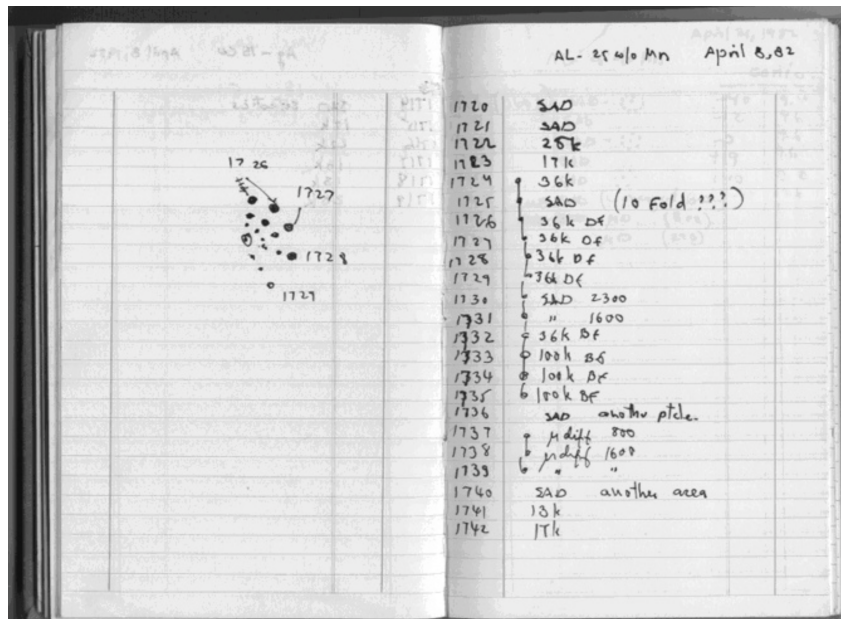 1726
1727
1728
1729
AL- 25 w/o Mn April 8,82
1720 SAD
1721 SAD
1722 25k
1723 17k
1724 36k
1725 SAD (10 Fold ???)
1726 36k DF
1727 36k DF
1728 36k DF
1729 36k DF
1730 SAD 2300
1731 " 1600
1732 36k BF
1733 100k BF
1734 100k BF
1735 100k BF
1736 SAD another ptcle.
1737 μ diff 800
1738 μ diff 1600
1739 " "
1740 SAD another area
1741 13k
1742 17k